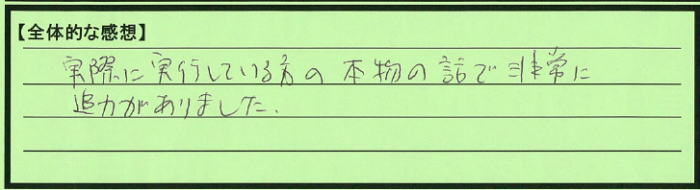 【全体的な感想】
実際に実行している方の本物の話で非常に
迫力がありました.